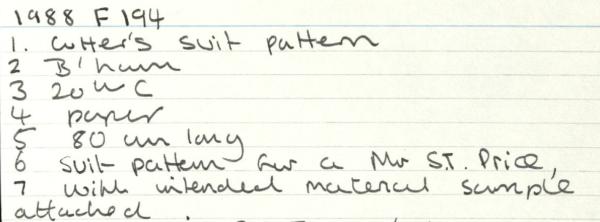 1988 F 194
1. Cutter's suit pattern
2 B'ham
3 20th C
4 paper
5 80 cm long
6 suit pattern for a Mr S.T. Price,
7 with intended material sample
attached